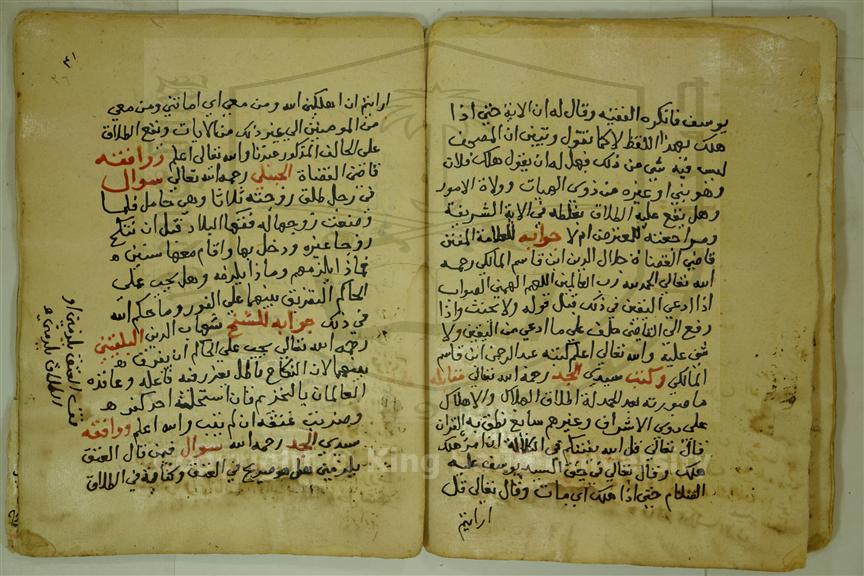 يوسف فانكره الفقيه وقال له ان الاية حتى اذا
هلك بهذا اللفظ لا كما تقول وتبين ان المصحف
ليس فيه شي من ذلك فهل له ان يقول هلك فلان
وهو نبي او غيره من ذوي الهبات وولاة الامور
وهل يقع عليه الطلاق بغلطه في الاية الشريفة
ومراجعته للمعترض ام لا جوابه للعلامة المفتي
قاضي القضاة جلال الدين ابن قاسم المالكي رحمه
الله تعالى الحمد لله رب العالمين اللهم الهمني الصواب
اذا ادعي اليقين في ذلك قبل قوله ولا تحنث واذا
رفع الى القاضي حلف على ما ادعي من اليقين ولا
شي عليه والله تعالى اعلم كتبه عبد الرحمن ابن قاسم
المالكي وكتب سيدي الجد رحمه الله تعالى مقابله
ما صورته بعد الحمدلة اطلاق الهلاك والاهلاك
على ذوي الاشراف وغيرهم سايغ نطق به القران
قال تعالى قل الله يفتيكم في الكلالة ان امرؤ هلك
هلك وقال تعالى في حق السيد يوسف عليه
السلام حتى اذا هلك اي مات وقال تعالى قل
ارايتم
٤١
ارايتم ان اهلكني الله ومن معي اي اماتني ومن معي
من المومنين الى غير ذلك من الايات ويقع الطلاق
على الحالف المذكور عندنا والله تعالى اعلم ووافقه
قاضي القضاة الحنبلي رحمه الله تعالى سوال
في رجل طلق زوجته ثلاثا وهي حامل فلما
وضعت زوجها له فكها البلاد قبل ان تنكح
زوجا غيره ودخل بها واقام معها سنتين
فماذا يلزمهم وماذا يلزمه وهل يجب على
الحاكم التفريق بينهما على الفور وما حكم الله
في ذلك جوابه للشيخ شهاب الدين البلقيني
رحمه الله تعالى يجب على الحاكم ان يفرق
بينهما لان النكاح باطل يعزر فيه فاعله وعاقده
العالمان بالتحريم فان استحله احد كفر
وضربت عنقه ان لم يتب والله اعلم ووافقه
سيدي الجد رحمه الله سوال فيمن قال العتق
يلزمني هل هو صريح في العتق وكناية في الطلاق
العتق يلزمني او
الطلاق يلزمني